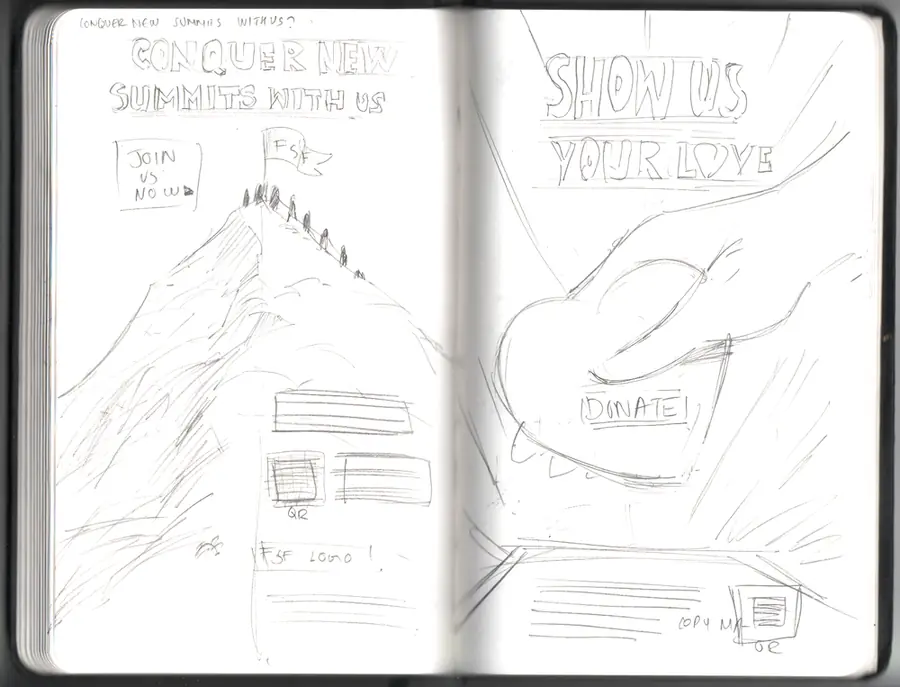 CONQUER NEW SUMMITS WITH US?
CONQUER NEW
SUMMITS WITH US
JOIN
US
NOW
FSF
QR
FSF LOGO!
SHOW US
YOUR LOVE
DONATE!
COPY
QR